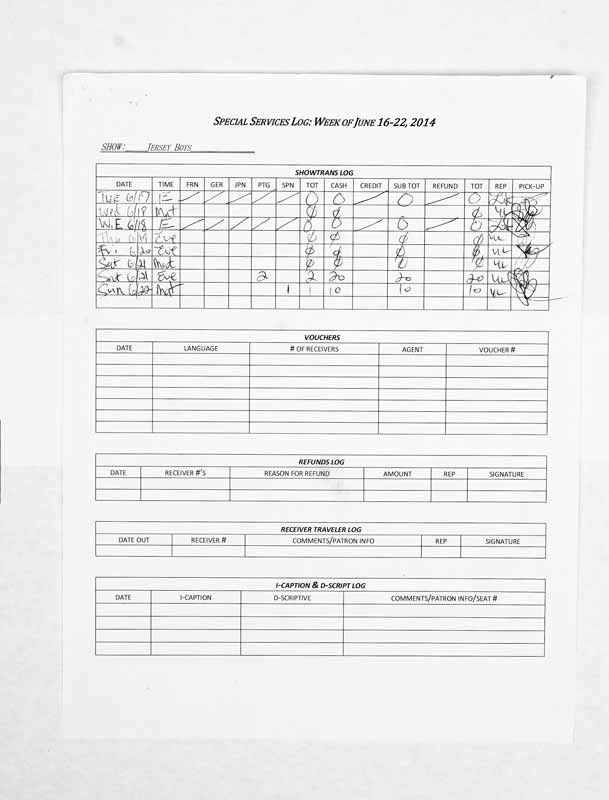 SPECIAL SERVICES LOG: WEEK OF JUNE 16-22, 2014
SHOW: JERSEY BOYS
SHOWTRANS LOG
DATE TIME FRN GER JPN PTG SPN TOT CASH CREDIT SUB TOT REFUND TOT REP PICK-UP
TUE 6/17 E 0 0 0 0
Wed 6/18 Mat ø ø ø
W.E 6/18 E 0 0 0 0
Thu 6/19 Eve ø ø ø ø
Fri 6/20 Eve ø ø ø ø
Sat 6/21 Mat ø ø ø ø
Sat 6/21 Eve 2 2 20 20 20
Sun 6/22 Mat 1 1 10 10 10
VOUCHERS
DATE LANGUAGE # OF RECEIVERS AGENT VOUCHER #
REFUNDS LOG
DATE RECEIVER #'S REASON FOR REFUND AMOUNT REP SIGNATURE
RECEIVER TRAVELER LOG
DATE OUT RECEIVER # COMMENTS/PATRON INFO REP SIGNATURE
I-CAPTION & D-SCRIPT LOG
DATE I-CAPTION D-SCRIPTIVE COMMENTS/PATRON INFO/SEAT #